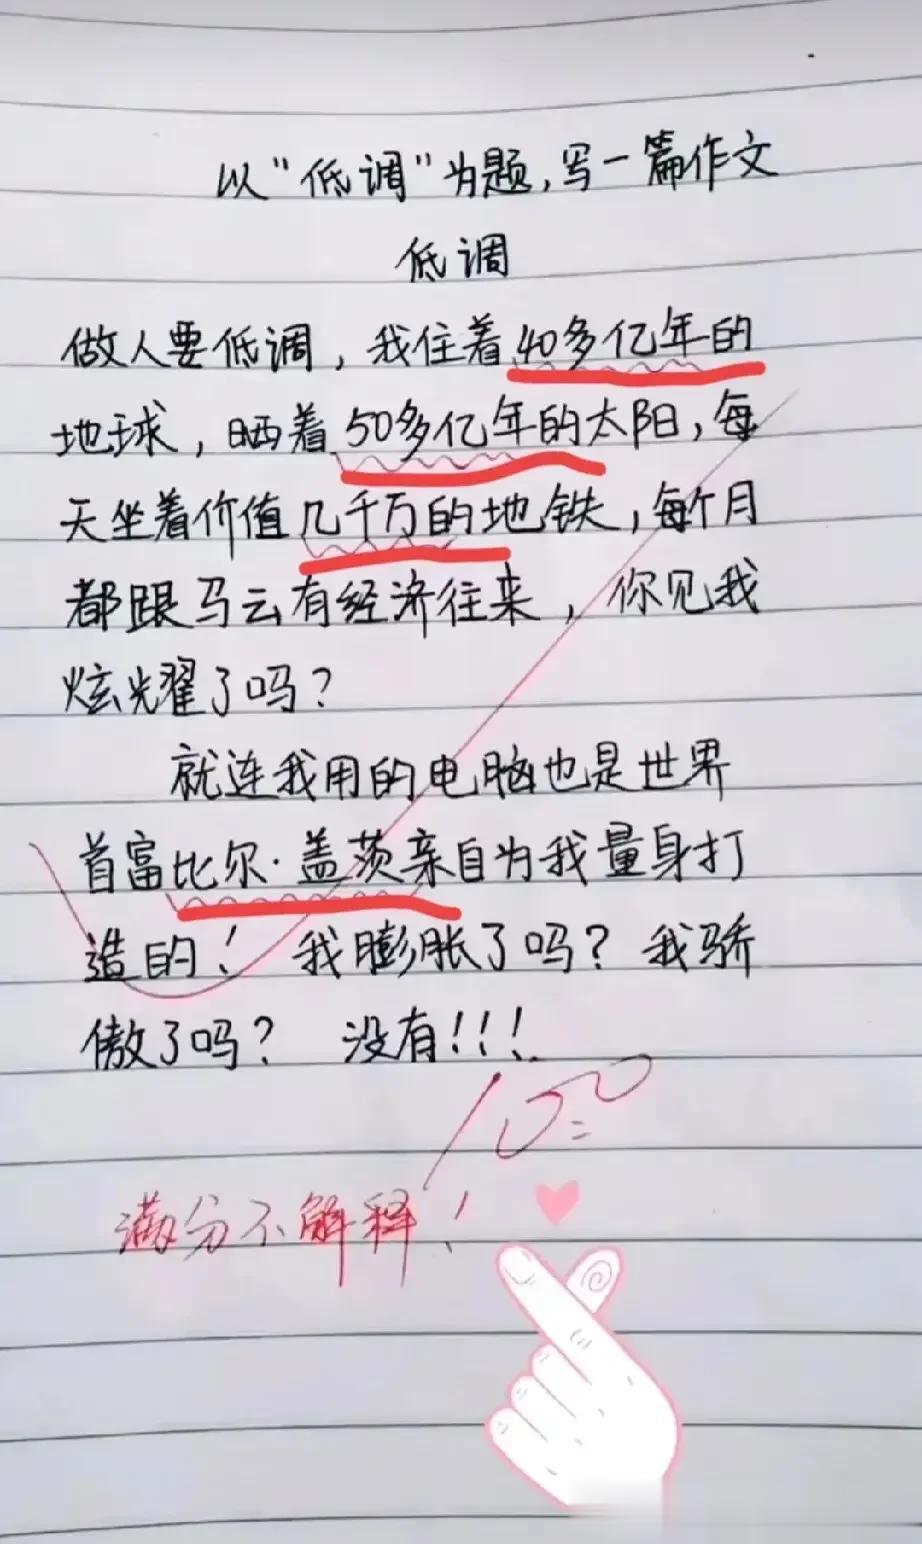 以"低调"为题,写一篇作文
低调
做人要低调，我住着40多亿年的
地球，晒着50多亿年的太阳,每
天坐着价值几千万的地铁,每个月
都跟马云有经济往来，你见我
炫耀了吗?
就连我用的电脑也是世界
首富比尔·盖茨亲自为我量身打
造的! 我膨胀了吗? 我骄
傲了吗? 没有!!!
100
满分不解释!